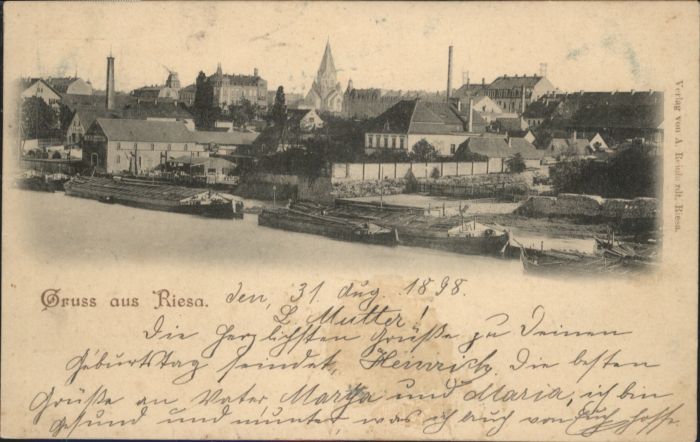 Verlag von A. Reinhardt, Riesa.
Gruss aus Riesa. den, 31. Aug. 1898.
L. Mutter!
Die herzlichsten Grüße zu Deinen
Geburtstag sendet, Heinrich. Die besten
Grüße an Vater, Martha und Maria, ich bin
gesund und munter, was ich auch von Euch hoffe.